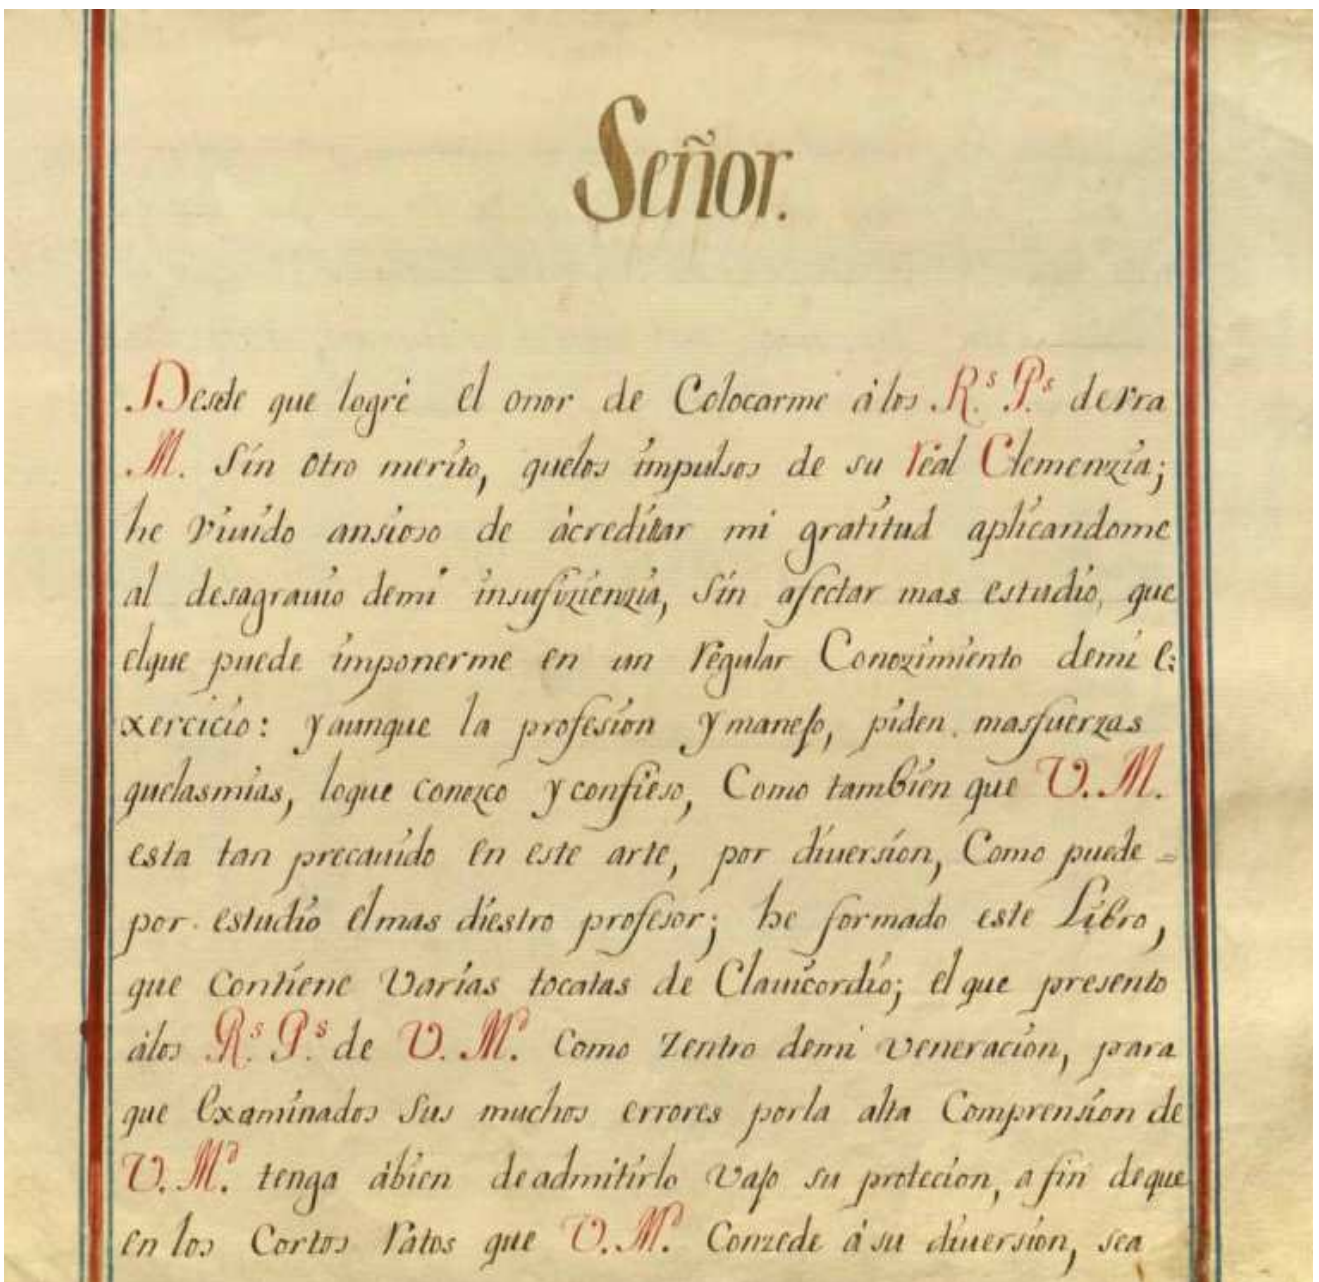 Señor.
Desde que logré el onor de Colocarme álos R.s P.s de Vra
M. Sin otro merito, quelos impulsos de su real Clemenzia;
he viuido ansioso de ácreditar mi gratitud aplicandome
al desagrauio demi insufizienzia, Sin afectar mas estudio, que
elque puede imponerme en un regular Conozimiento demi e:
xercicio: y aunque la profesion y manejo, piden masfuerzas
quelasmias, loque conozco y confieso, Como tambien que V. M.
esta tan precauido en este arte, por diuersion, Como puede =
por estudio elmas diestro profesor; he formado este Libro,
que Contiene Varias tocatas de Clauicordio; el que presento
álos R.s P.s de V. M.d Como Zentro demi veneracion, para
que Examinados Sus muchos errores porla alta Comprension de
V. M.d tenga ábien deadmitirlo Vajo su protecion, a fin deque
en los Cortos ratos que V. M.d Conzede á su diuersion, sea